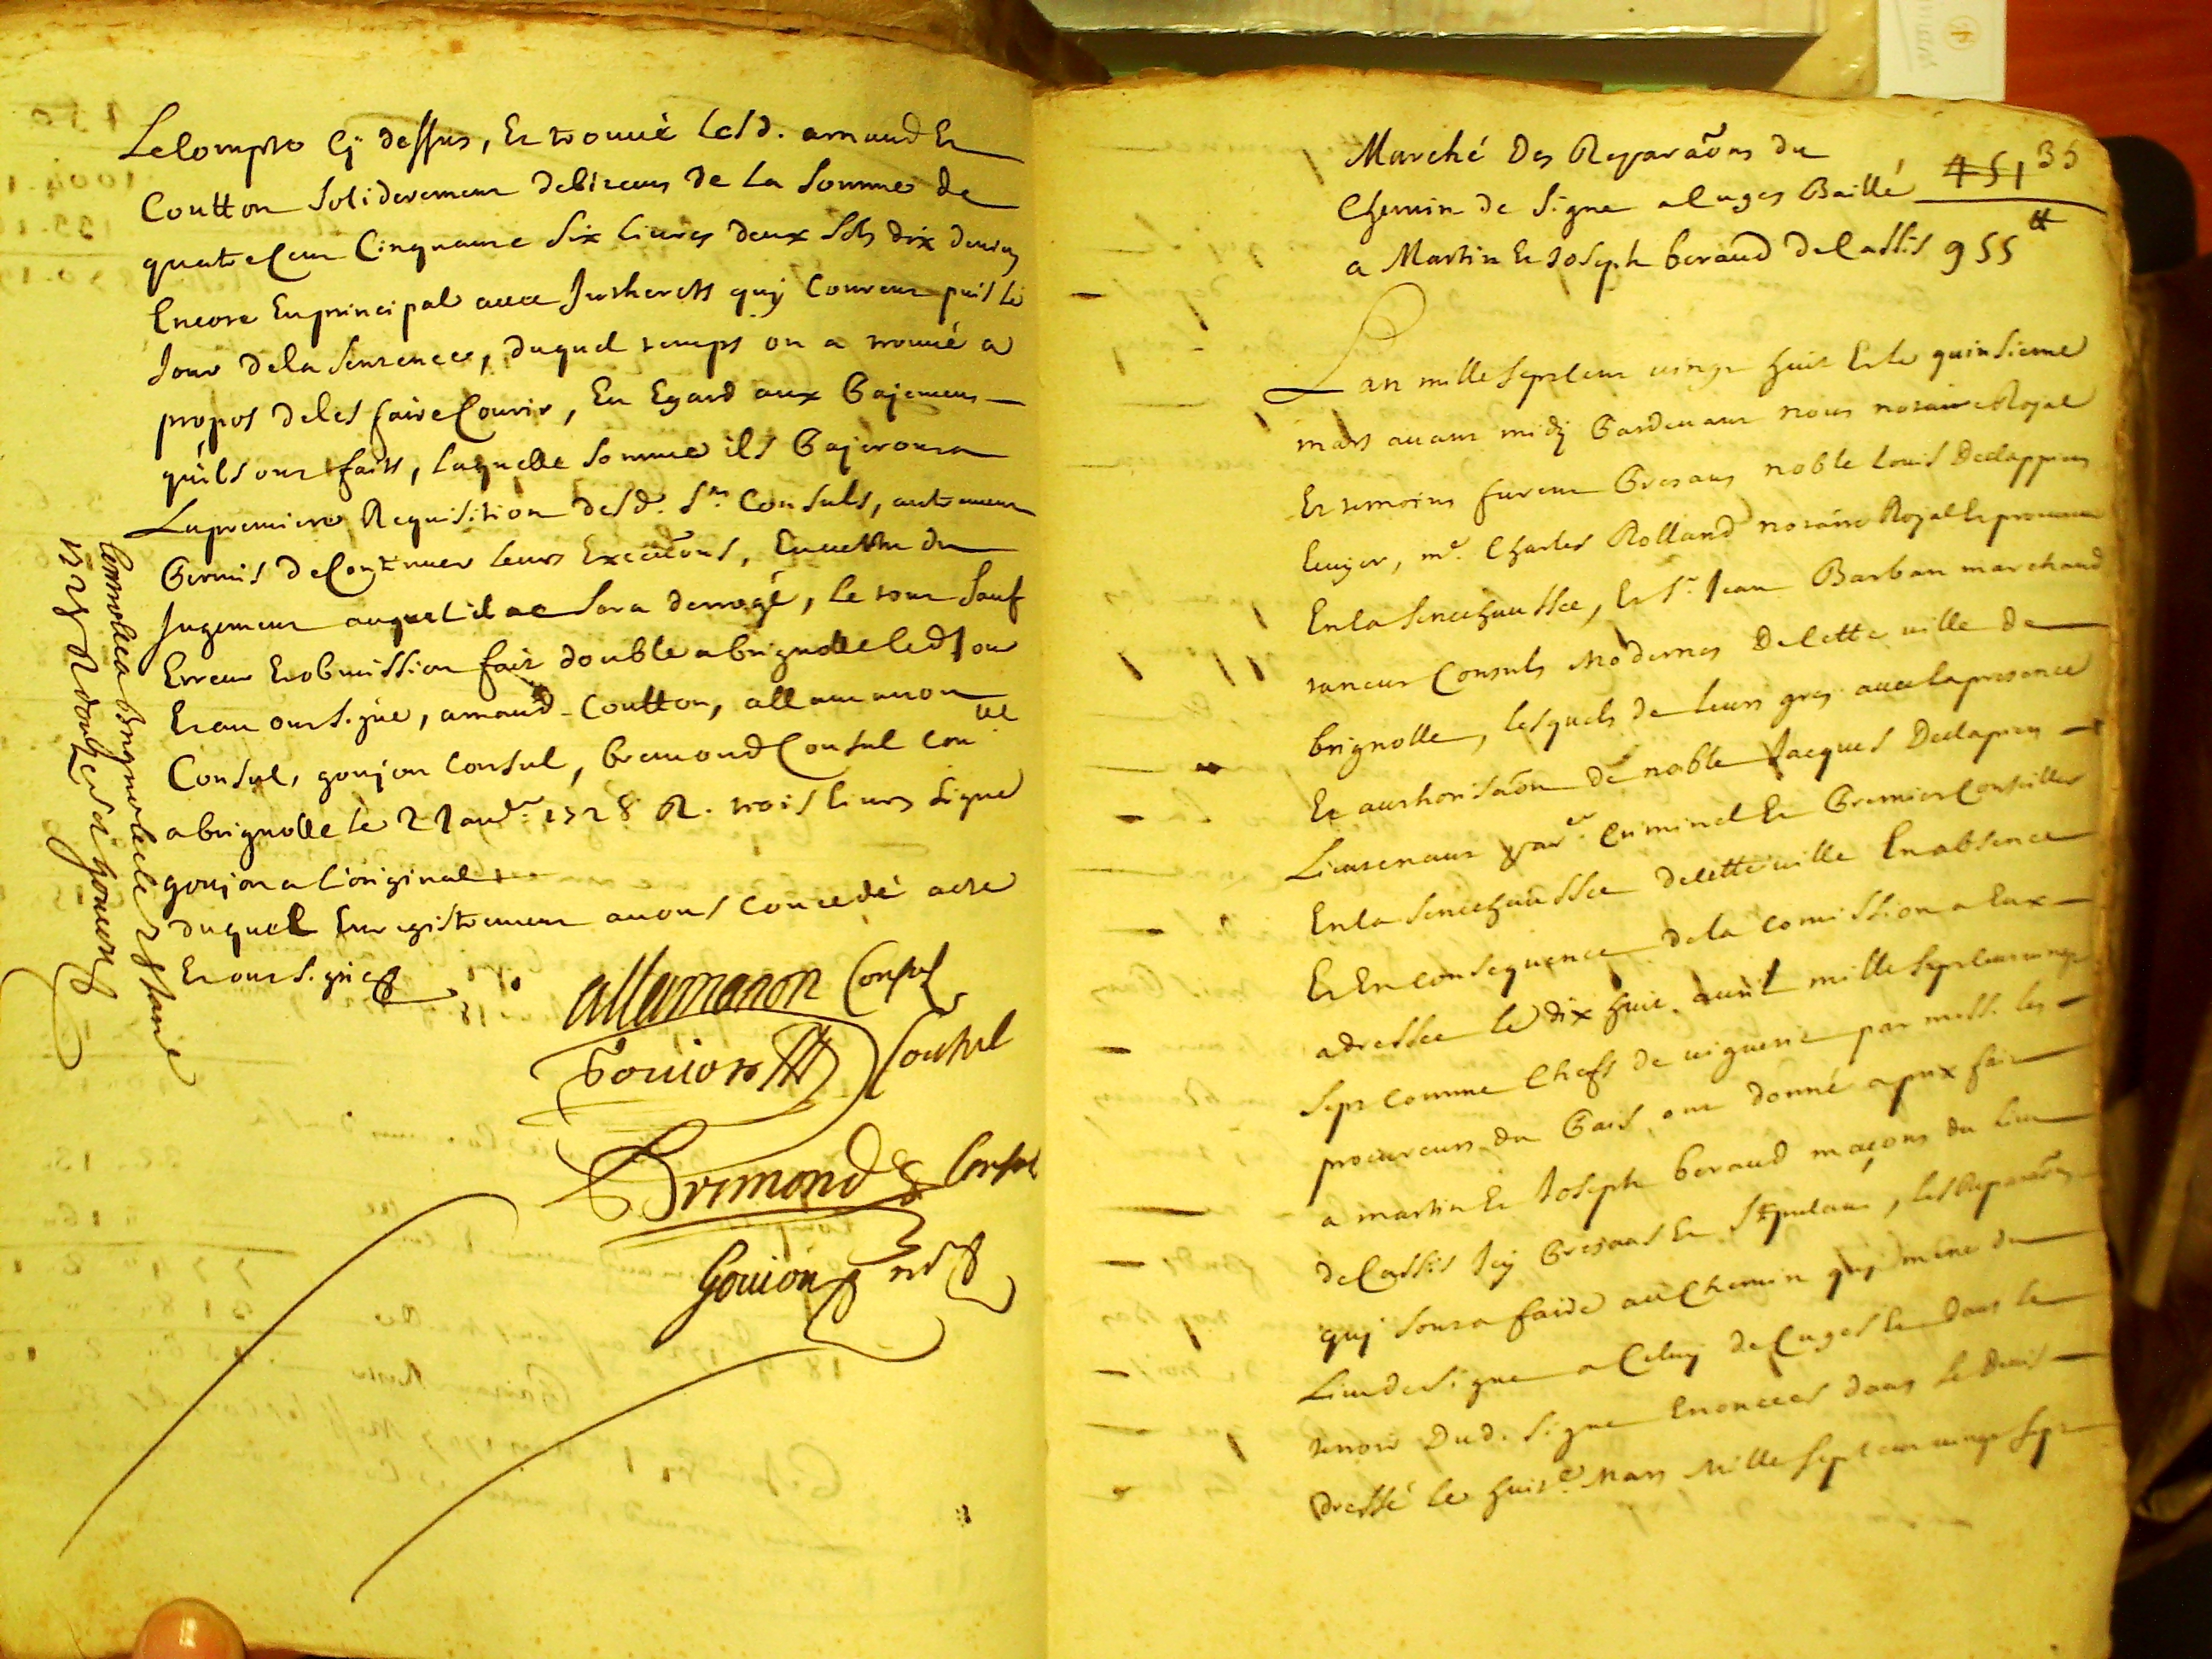 Le Compte Cy dessus, Et trouvé lesd. arnaud Et
Coutton Soliderement debiteurs de la Somme de
quatre Cent Cinquante Six Livres deux Sols dix deniers
Encore En principal avec Jntherets quj Courent puis le
Jour de la Sentence, duquel temps on a trouvé a
propos de les faire Courir, Eu Egard aux Pajemens
qu'ils ont faits, Laquelle Somme ils Pajeront a
La premiere Requisition desd. Srs Consuls, autrement
Permis de Continuer leurs Execuõns, En vertu du
Jugement auquel il ne Sera derrogé, le tout Sauf
Erreur Et obmission fait double a brignolle led Jour
Et an ont Signé, arnaud - Coutton, allamanon
Consul, goujon Consul, bremond Consul Conllé
a brignolle le 2 Janvr 1728 R. trois livres Signé
goujon a l'original
duquel Enregistrement avons Concedé acte
Et ont Signé
allamanon Consul
Goujon Consul
Bremond Consul
Goujon
Controllé a Brignolle le 2 Janvr
1728 R douze s. Goujon
Marché Des Reparaõns du
Chemin de Signe a Cuges Baillé
a Martin Et Joseph beraud de Cassis 955 ₶
451 35
L'an mille Sept Cent vingt huit Et le quinsieme
mars avant midy Pardevant nous notaire Royal
Et temoins furent Presans noble Louis Declappiers
Ecuyer, me. Charles Rolland notaire Royal Et procureur
En la Senechaussée, Et Sr. Jean Barban marchand
taneur Consuls Modernes de Cette ville de
brignolle, lesquels de leurs grez avec la presence
Et authorisaõn de noble Jacques Declapiers
Lieutenant parer. Criminel Et Premier Conseiller
En la Senechaussée de Cette ville En absence
Et En Consequence de la Comission a Eux
adressée le dix huit avril mille Sept Cent vingt
Sept Comme Chefs de viguerie par mess. les
procureurs du Pais ont donné a prix fait
a martin Et Joseph beraud maçons du Lieu
de Cassis Jcy Presans Et Stipulans, les Reparaõns
quj Sont a faire au Chemin quj méne du
Lieu de Signe a Celuy de Cuges Et dans le
terroir Dud. Signe Enoncées dans le Devis
dressé le huite. Mars Mille Sept Cent vingt Sept